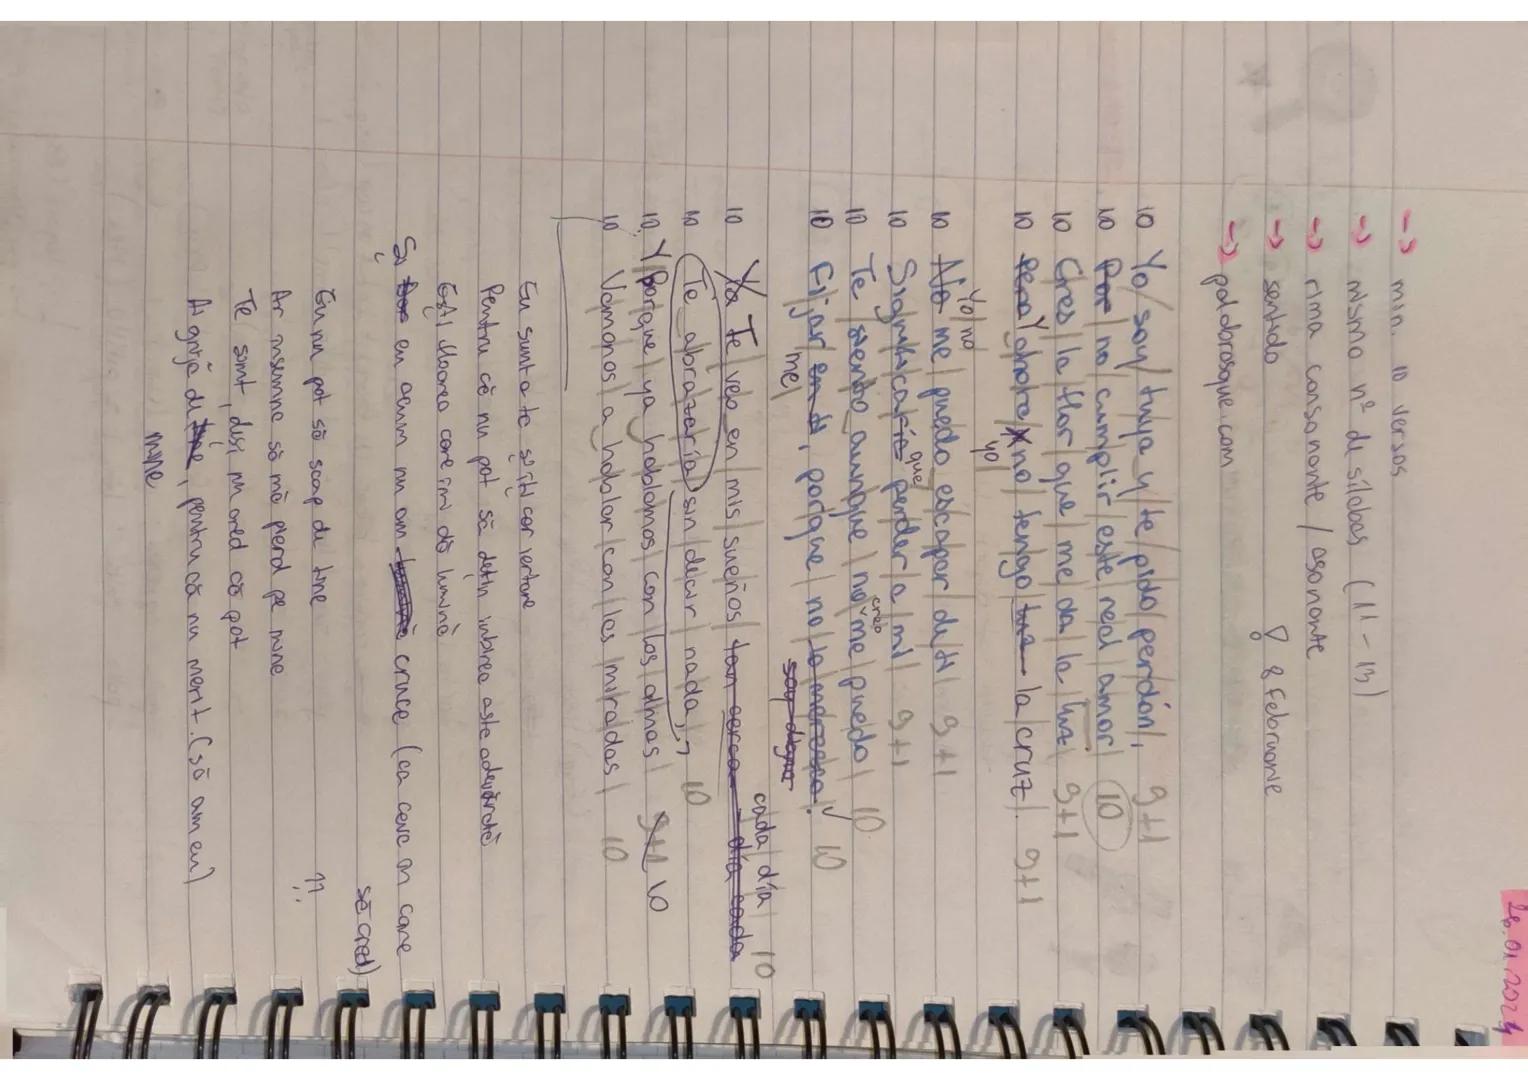 26.01.2024
→ min. 10 versos
→ mismo nº de sílabas (11-13)
→ rima consonante / asonante
→ sentido 8 februarie
→ palabrasque.com
10 Yo/soy/tuya y/te/pido/perdón/, 9+1
10 Por no cumplir/este real/amor/ 10
10 Eres/la flor/que/me da/la luz/ 9+1
10 Pero Y ahora/x no/tengo/tu la/cruz/. 9+1
yo
Yo/no
10 No me/puedo escapar/de/ti/ 9+1
10 Significaría perder/a mí/ 9+1
que
10 Te/siento aunque/no me/puedo/ 10
creo
10 Fijar en ti, porque/no/lo merezco. 10
me/ soy digna
10 Ya Te/veo en/mis/sueños/ tan cerca día cada 10
cada/día
10 Te abrazaría/sin/decir/nada/, 10
10 Y/Porque/ya/hablamos/con/las/almas/ 9+1 10
10 Vamonos/a hablar/con/las/miradas/ 10
Eu sunt a ta și îți cer iertare
Pentru că nu pot să dețin iubirea asta adevărată
Ești floarea care îmi dă lumină
Și eu acum nu am cruce (ca ceva în care
să cred)
Eu nu pot să scap de tine
Ar însemna să mă pierd pe mine
Te simt, deși nu cred că pot
Ai grijă de, pentru că nu merit. (să am eu)
mine